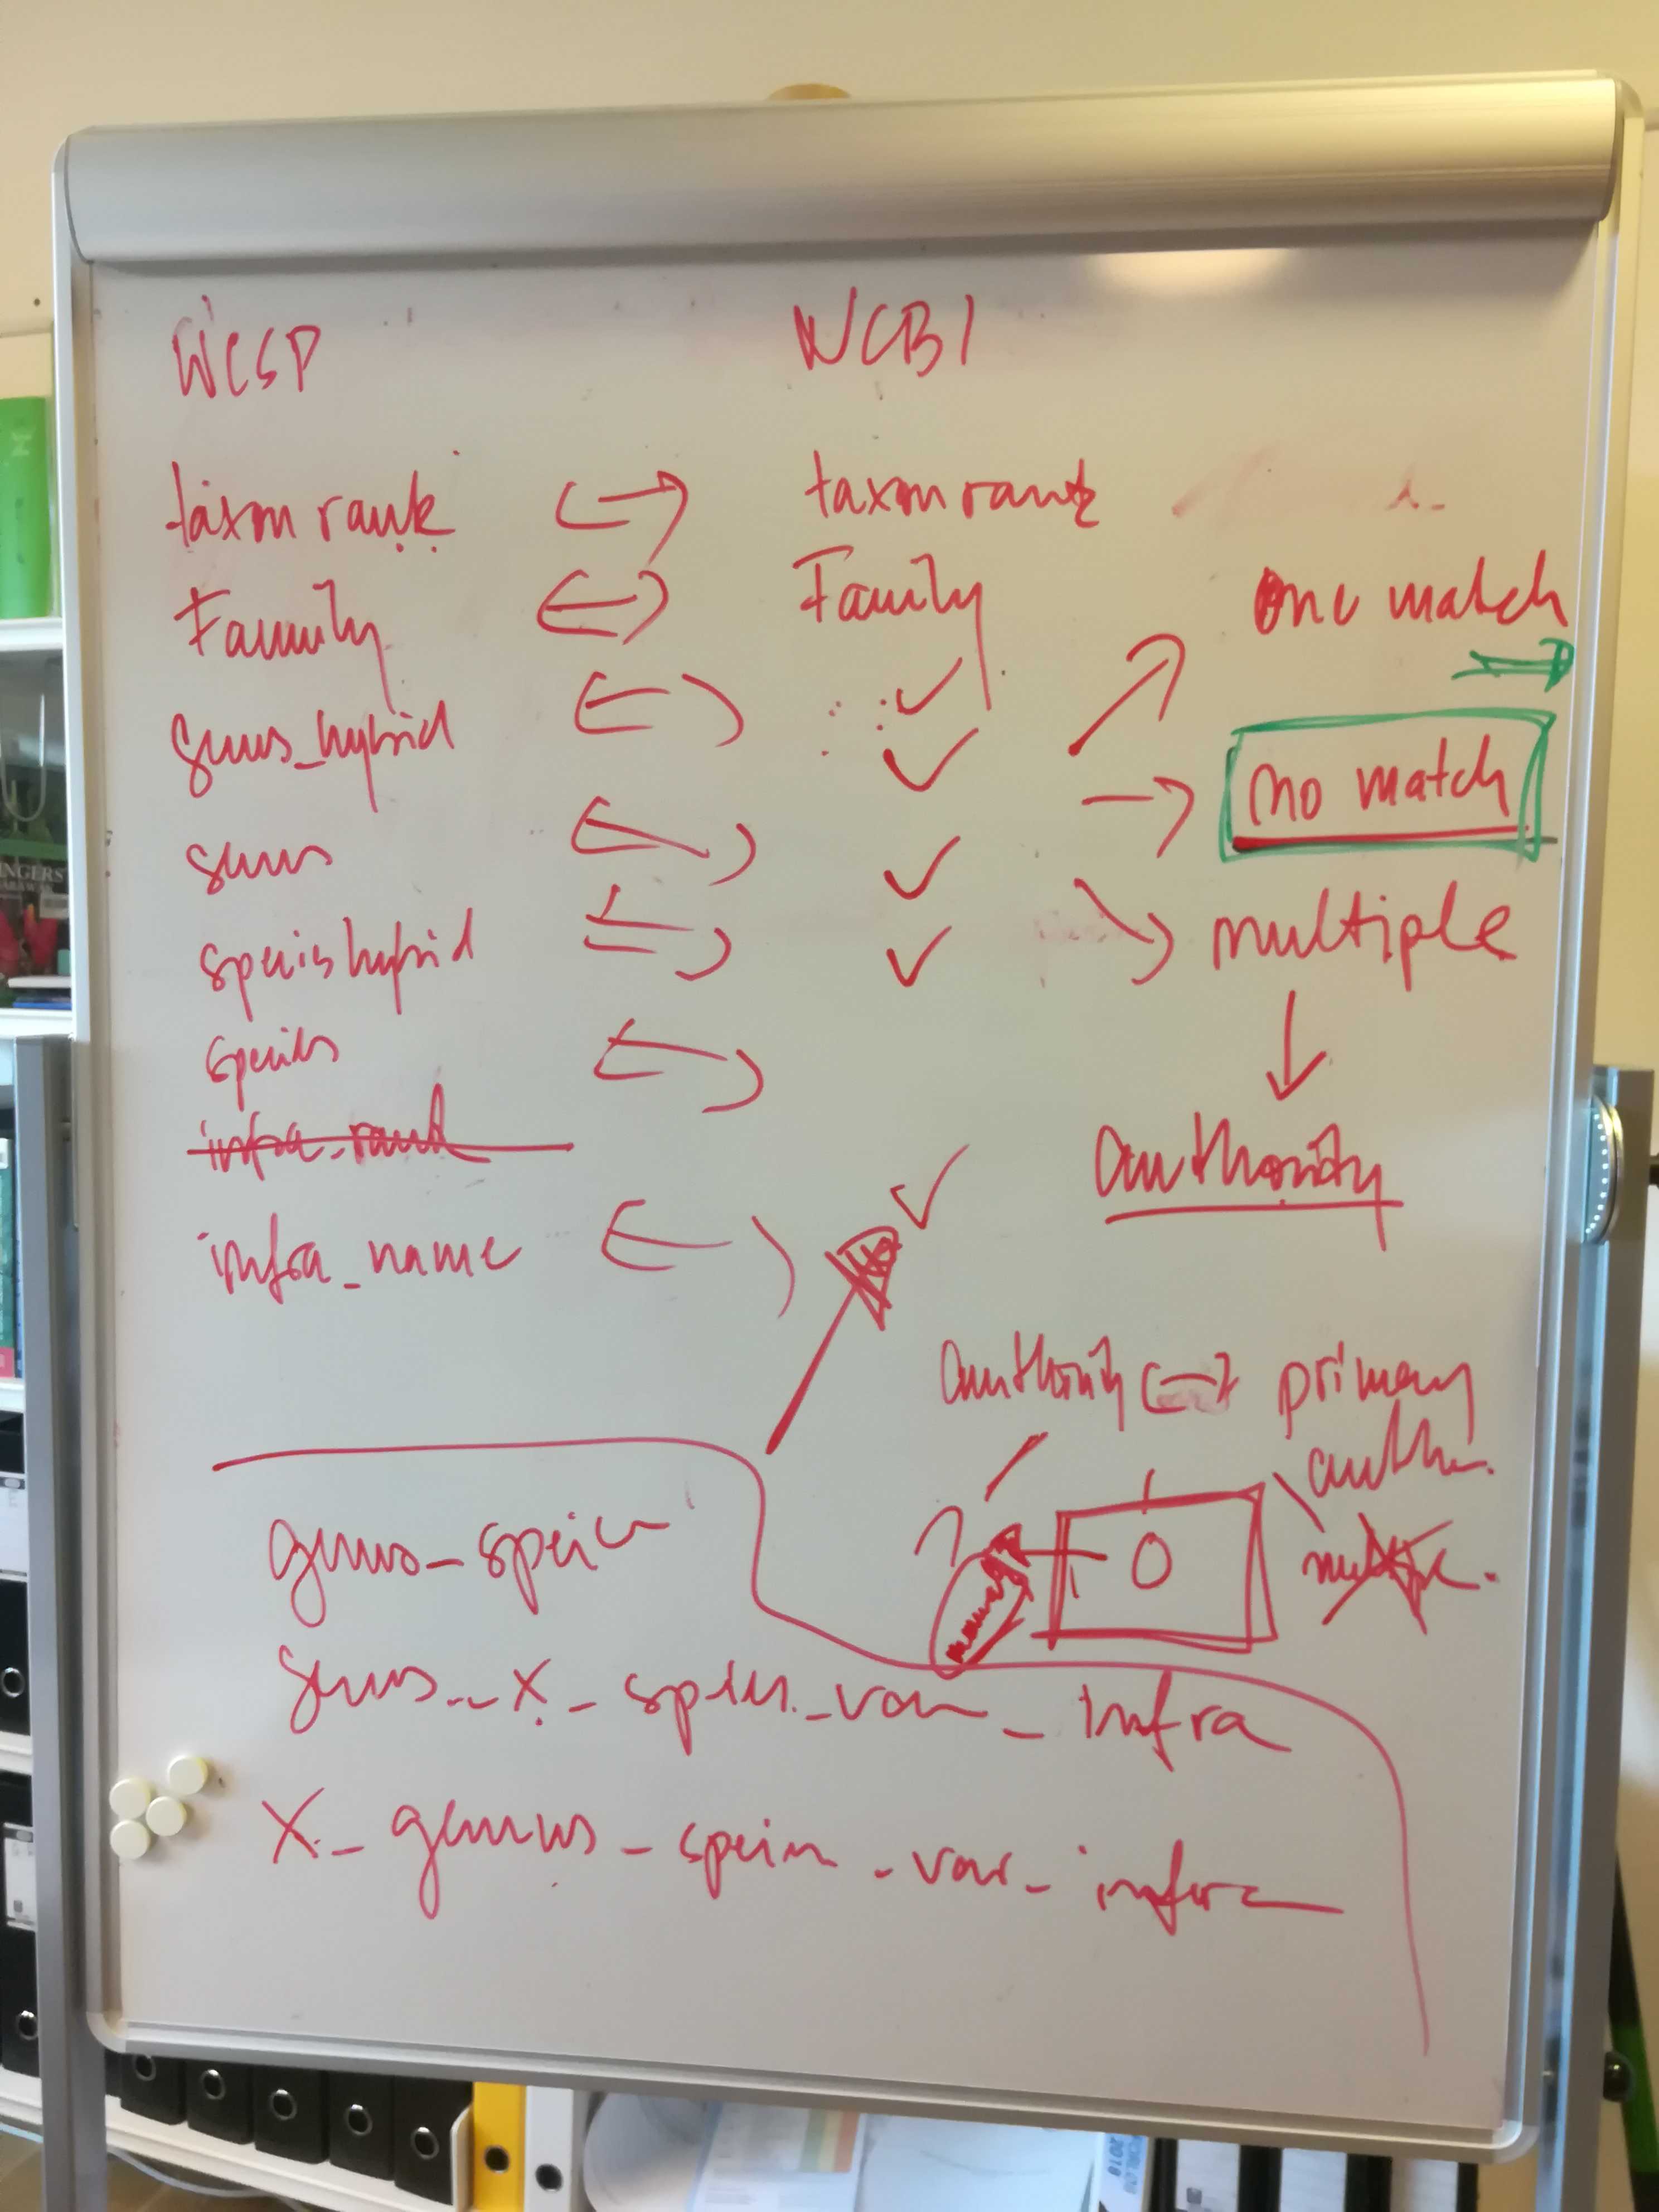 WCSP
NCBI
taxon rank
taxon rank
Family
Family
genus_hybrid
genus
species hybrid
species
infra_rank
infra_name
one match
no match
multiple
authority
authority
primary
auth.
?
O
genus_species
genus_x_species_var_infra
X_genus_species_var_infra
INGERS
2018